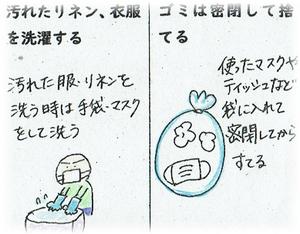 汚れたリネン、衣服
を洗濯する
汚れた服・リネンを
洗う時は手袋・マスク
をして洗う
ゴミは密閉して捨
てる
使ったマスクや
ティッシュなど
袋に入れて
密閉してから
すてる